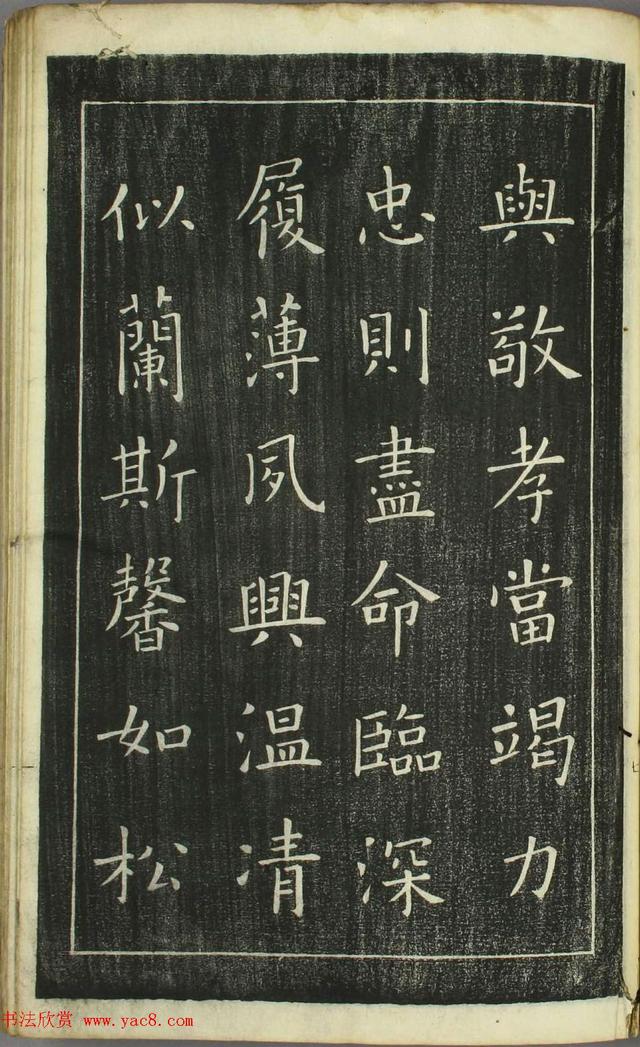 與敬孝當竭力
忠則盡命臨深
履薄夙興温凊
似蘭斯馨如松
书法欣赏 www.yac8.com